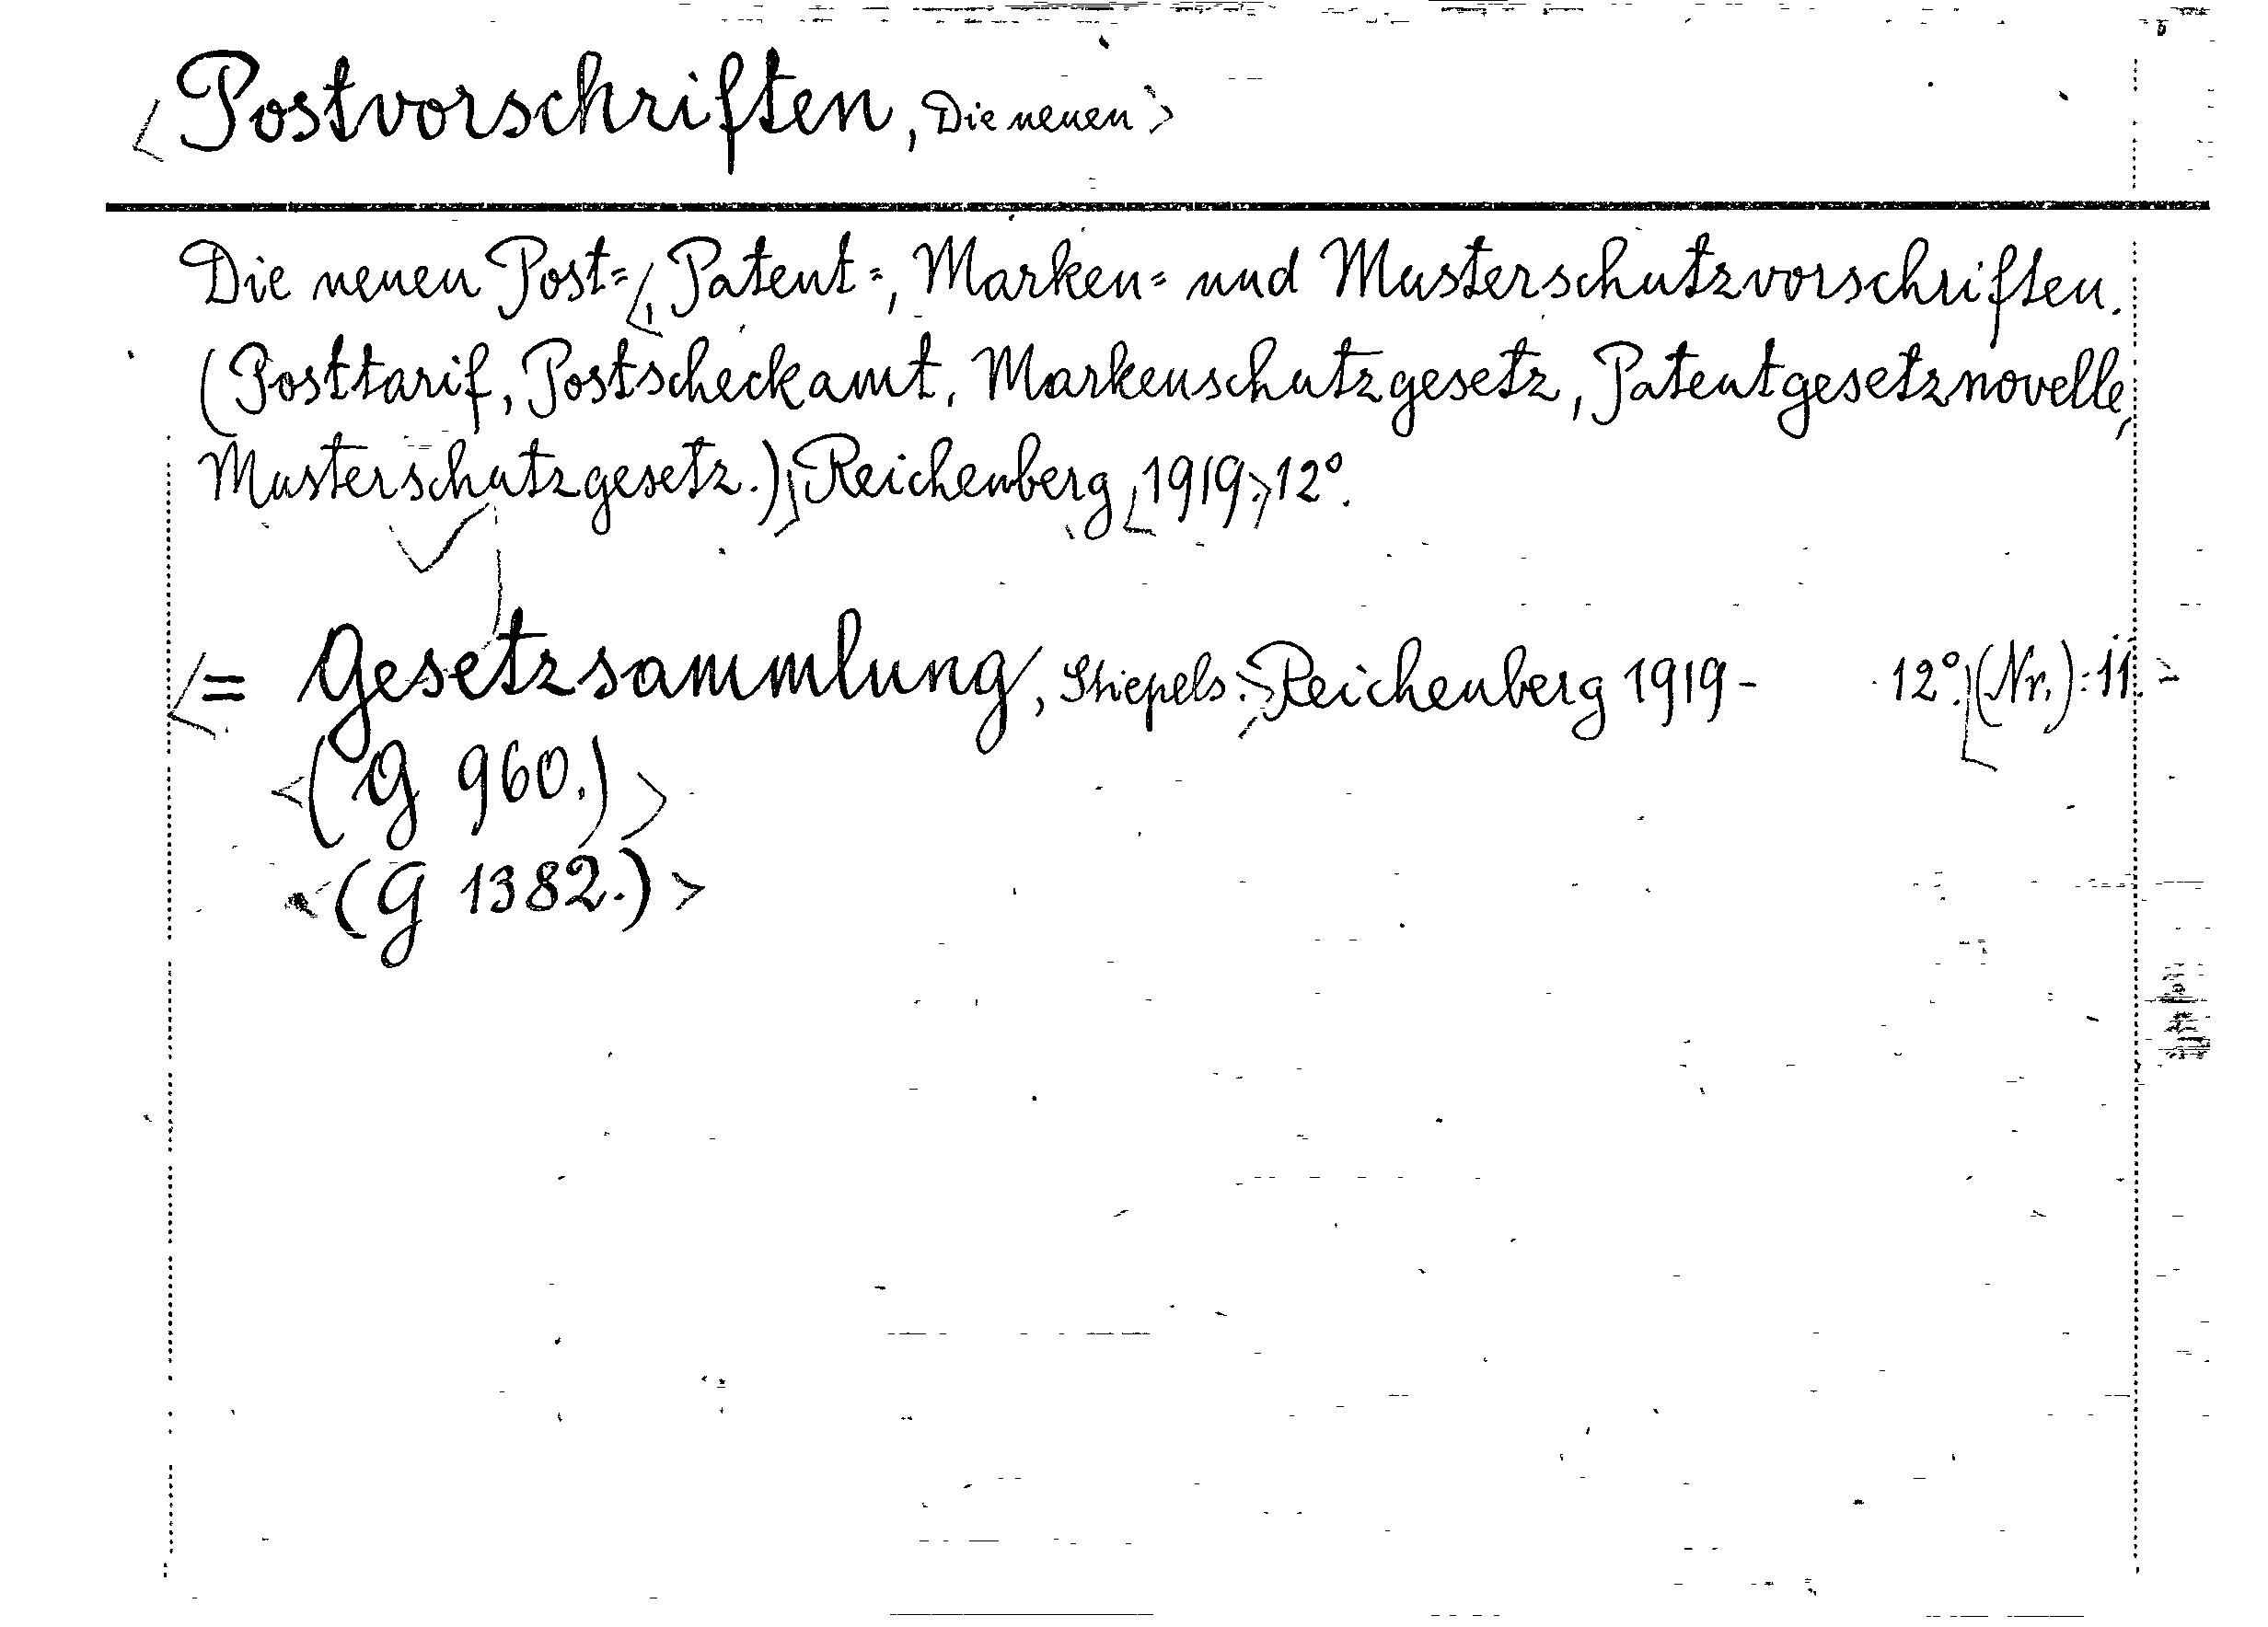 <Postvorschriften, Die neuen>
Die neuen Post=, Patent=, Marken= und Musterschutzvorschriften.
(Posttarif, Postscheckamt, Markenschutzgesetz, Patentgesetznovelle,
Musterschutzgesetz.) Reichenberg <1919.> 12°.
<= Gesetzsammlung, Stiepels: Reichenberg 1919- 12°. (Nr.): 11.>
<(G 960.)>
<(G 1382.)>